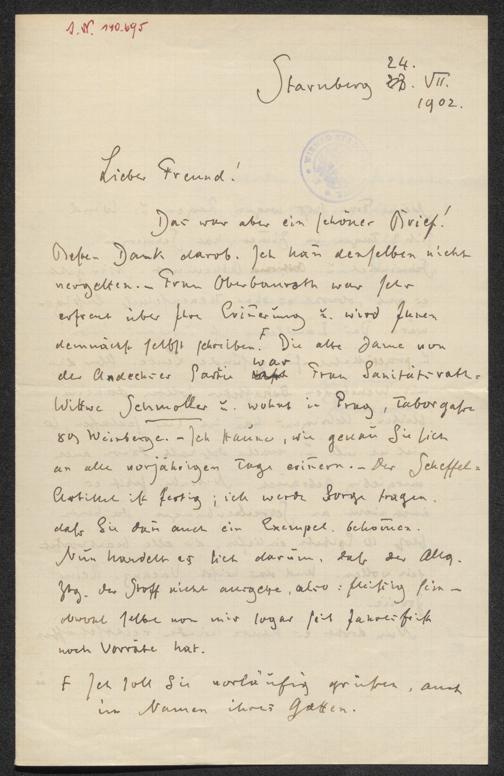 J.N. 140.695
Starnberg 24. VII.
1902.
Lieber Freund!
Das war aber ein schöner Brief!
Besten Dank darob. Ich kan̄ denselben nicht
vergelten. – Frau Oberbaurath war sehr
erfreut über Ihre Erin̄erung u. wird Ihnen
demnächst selbst schreiben. F Die alte Dame von
der Andechser Partie war Frau Sanitätsrath=
Wittwe Schmoller u. wohnt in Prag, Taborgasse
Weinberge. – Ich staune, wie genau Sie sich
an alle vorjährigen Tage erin̄ern. – Der Scheffel=
Artikel ist fertig; ich werde Sorge tragen,
daß Sie dan̄ auch ein Exempl. bekom̄en.
Nun handelt es sich darum, daß der Allg.
Ztg. der Stoff nicht ausgehe, also: fleißig sein –
obwohl selbe von mir sogar seit Jahresfrist
noch Vorräthe hat.
F Ich soll Sie vorläufig grüßen, auch
im Namen ihres Gatten.